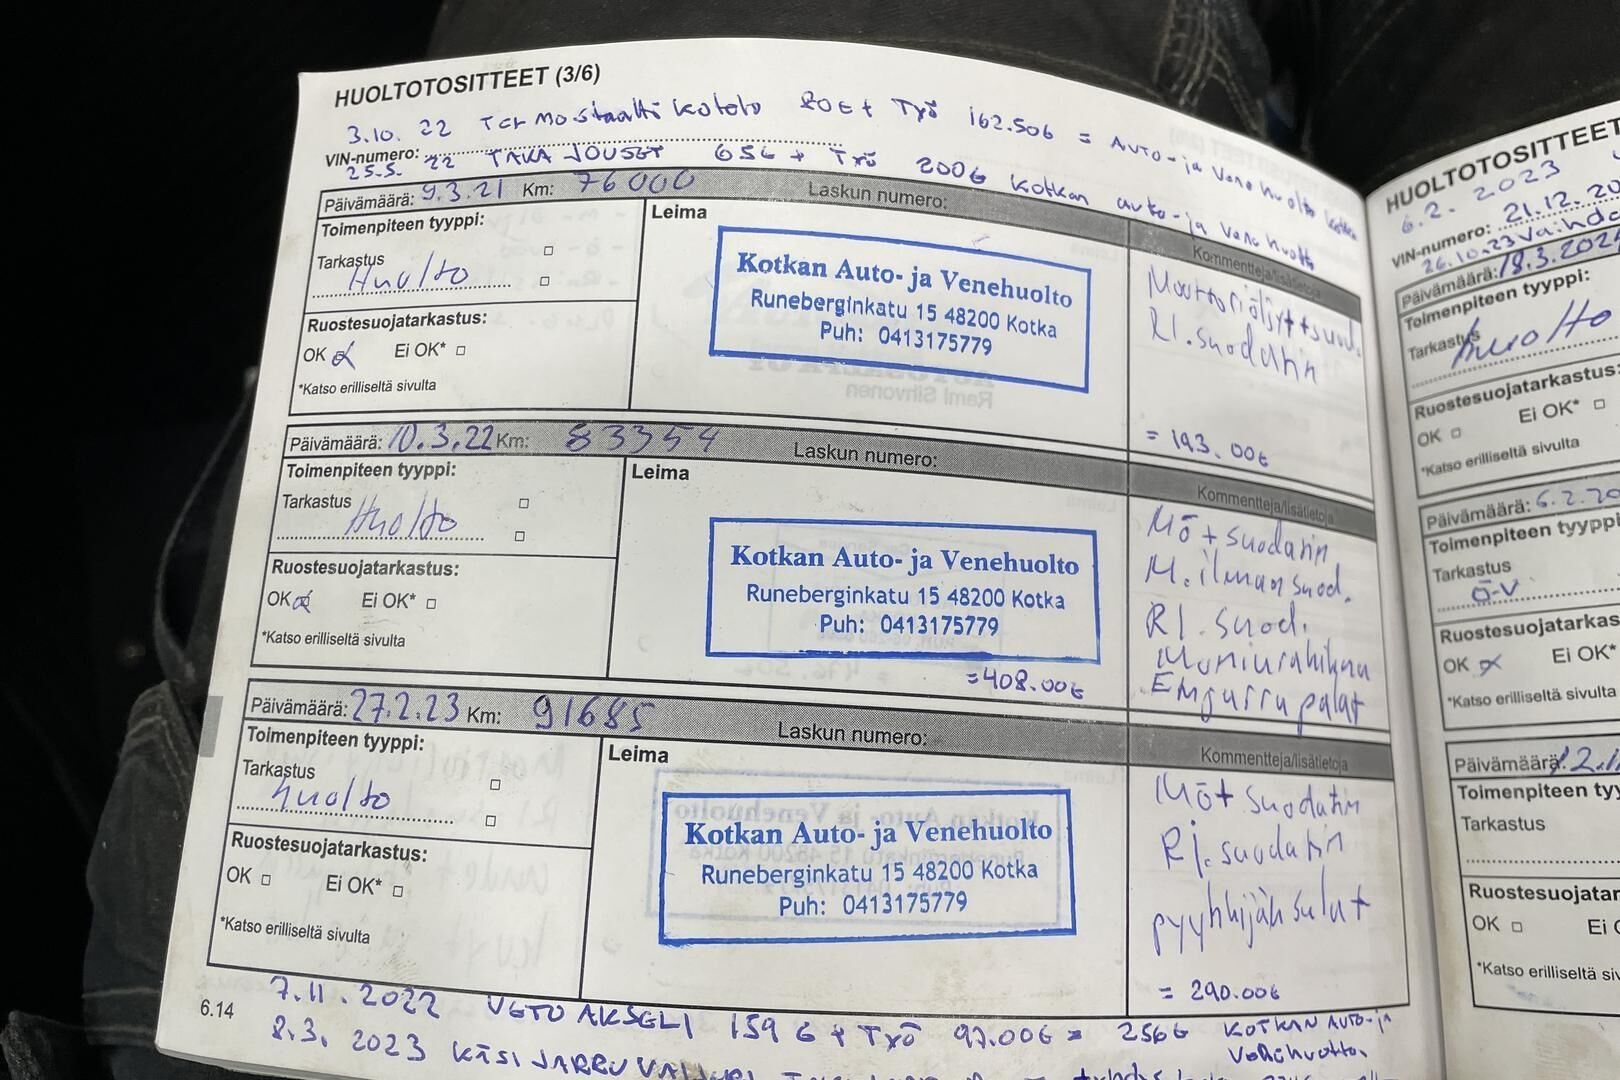 HUOLTOTOSITTEET (3/6)
3.10. 22 Termostaatti kotelo 80€ + Työ 162.50€ = Auto-ja Vene huolto
VIN-numero:
25.5. 22 TAKA JOUSET 65€ + Työ 200€ Kotkan auto-ja Venehuolto
Päivämäärä: 9.3.21 Km: 76000 Laskun numero:
Toimenpiteen tyyppi:
Leima
Kommentteja/lisätietoja
Tarkastus
Huolto
Kotkan Auto- ja Venehuolto
Runeberginkatu 15 48200 Kotka
Puh: 0413175779
Moottoriöljyt+suod.
RI.suodatin
= 193.00€
Ruostesuojatarkastus:
OK Ei OK*
*Katso erilliseltä sivulta
Rami Siltvonen
Päivämäärä: 10.3.22 Km: 83354 Laskun numero:
Toimenpiteen tyyppi:
Leima
Kommentteja/lisätietoja
Tarkastus
Huolto
Kotkan Auto- ja Venehuolto
Runeberginkatu 15 48200 Kotka
Puh: 0413175779
=408.00€
Mö+suodatin
M.ilmansuod.
RI.suod.
Moniurahihna
palat
Ruostesuojatarkastus:
OK Ei OK*
*Katso erilliseltä sivulta
Päivämäärä: 27.2.23 Km: 91685 Laskun numero:
Toimenpiteen tyyppi:
Leima
Kommentteja/lisätietoja
Tarkastus
huolto
Kotkan Auto- ja Venehuolto
Runeberginkatu 15 48200 Kotka
Puh: 0413175779
Mö+suodatin
RI.suodatin
pyyhkijän sulat
= 290.00€
Ruostesuojatarkastus:
OK Ei OK*
*Katso erilliseltä sivulta
6.14
7.11.2022 VETO AKSELI 159€ + Työ 97.00€ = 256€ KOTKAN AUTO-ja
Venehuolto.
8.3. 2023 KÄSI JARRU
HUOLTOTOSITTEET
6.2. 2023
VIN-numero: 21.12.
26.10.23
Päivämäärä: 18.3.
Toimenpiteen tyyppi:
Tarkastus
huolto
Ruostesuojatarkastus:
OK Ei OK*
*Katso erilliseltä sivulta
Päivämäärä: 6.2.
Toimenpiteen tyyppi:
Tarkastus
Ö-V
OK Ei OK*
*Katso erilliseltä sivulta
Päivämäärä:
Tarkastus
OK